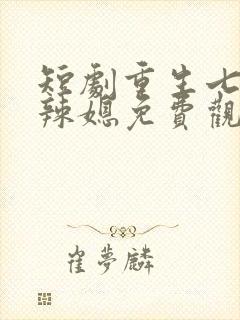 短劇重生七
辣媳免費觀
崔夢麟